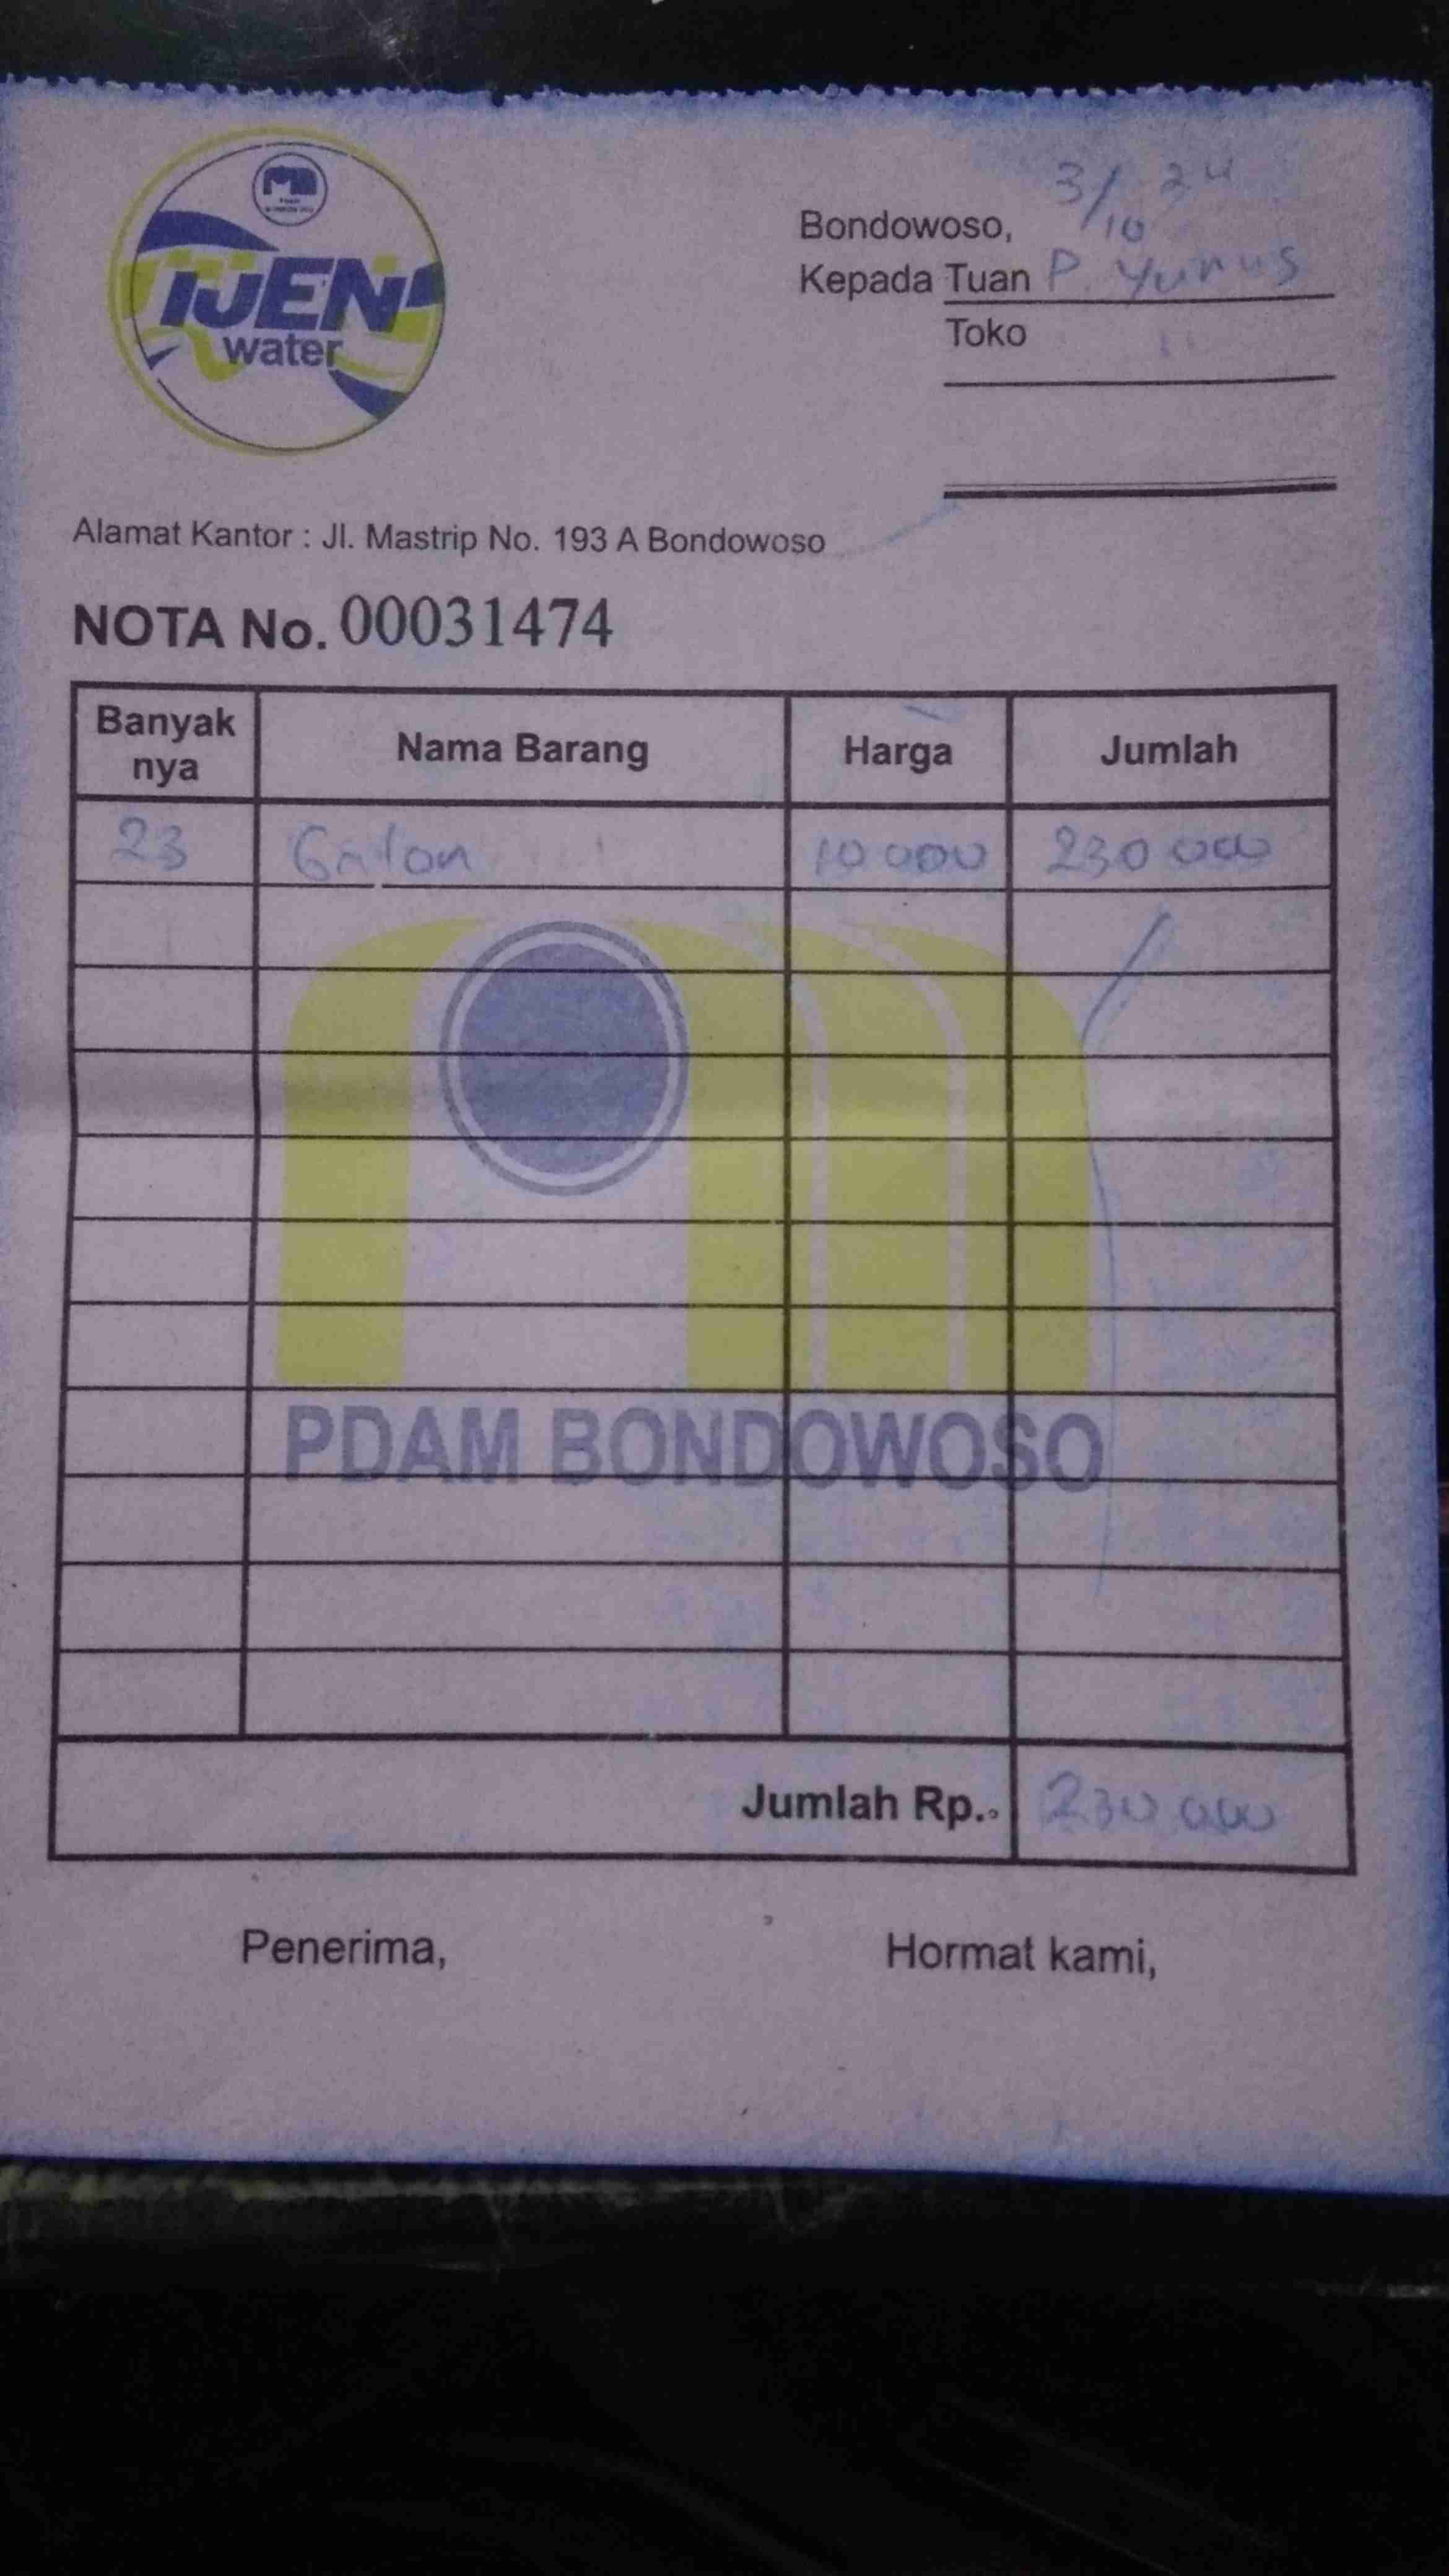 IJEN
water
Bondowoso, 3/10 24
Kepada Tuan P. Yunus
Toko
Alamat Kantor : Jl. Mastrip No. 193 A Bondowoso
NOTA No. 00031474
Banyak nya Nama Barang Harga Jumlah
23 Galon 10 000 230 000
PDAM BONDOWOSO
Jumlah Rp.. 230 000
Penerima, Hormat kami,